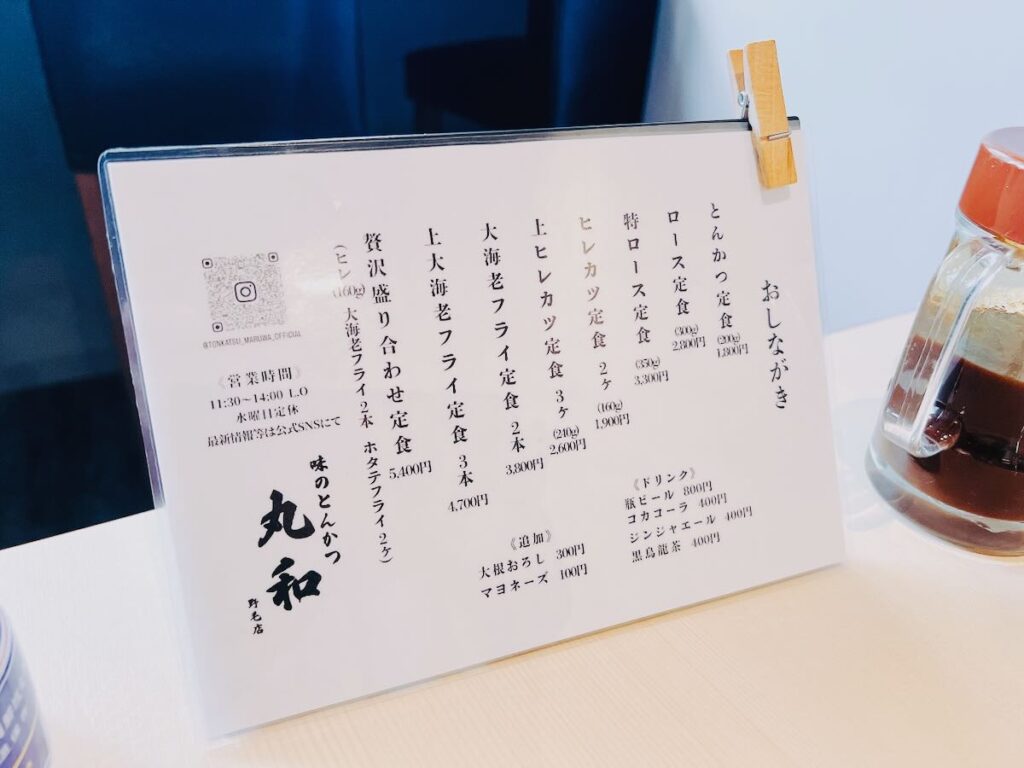 おしながき
とんかつ定食 (200g) 1,800円
ロース定食 (300g) 2,800円
特ロース定食 (350g) 3,300円
ヒレカツ定食 2ヶ (160g) 1,900円
上ヒレカツ定食 3ヶ (240g) 2,600円
大海老フライ定食 2本 3,800円
上大海老フライ定食 3本 4,700円
贅沢盛り合わせ定食 5,400円
(ヒレ(160g) 大海老フライ2本 ホタテフライ2ヶ)
《ドリンク》
瓶ビール 800円
コカコーラ 400円
ジンジャエール 400円
黒烏龍茶 400円
《追加》
大根おろし 300円
マヨネーズ 100円
@TONKATSU_MARUWA_OFFICIAL
《営業時間》
11:30~14:00 L.O
水曜日定休
最新情報等は公式SNSにて
味のとんかつ
丸和
野毛店